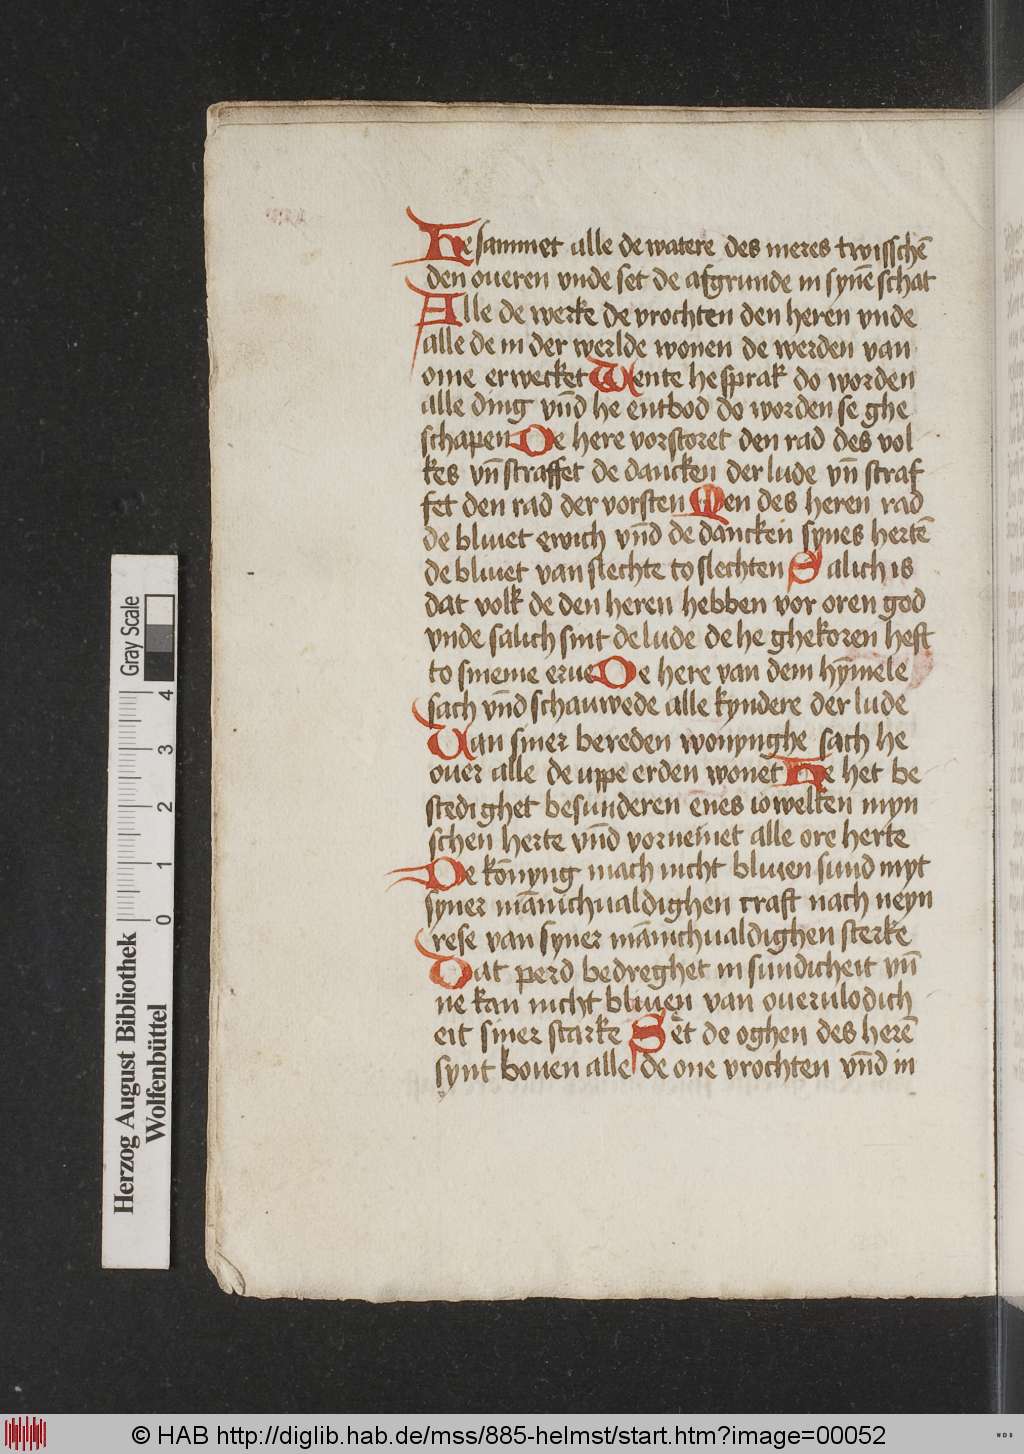 He sammet alle de watere des meres twisschē
den oueren vnde set de afgrunde in synē schat
Alle de werke de vrochten den heren vnde
alle de in der werlde wonen de werden van
ome erwecket Wente he sprak do worden
alle ding vn̄d he entbod do worden se ghe
schapen De here vorstoret den rad des vol
kes vn̄ straffet de dancken der lude vn̄ straf
fet den rad der vorsten Men des heren rad
de bliuet ewich vn̄d de dancken synes hertē
de bliuet van slechte to slechten Salich is
dat volk de den heren hebben vor oren god
vnde salich sint de lude de he ghekoren heft
to sineme erue De here van dem hȳmele
sach vn̄d schauwede alle kyndere der lude
Uan siner bereden wonynghe sach he
ouer alle de uppe erden wonet He het be
stedighet besunderen enes iowelken myn
schen herte vn̄d vornēmet alle ore herte
De kōnyng mach nicht bliuen sund myt
syner mānichualdighen craft nach neyn
rese van syner mānichualdighen sterke
Dat perd bedreghet in sundicheit vn̄
ne kan nicht bliuen van ouerulodich
eit siner starke Sēt de oghen des herē
synt bouen alle de one vrochten vn̄d in
Herzog August Bibliothek
Wolfenbüttel
0 1 2 3 4
Gray Scale
© HAB http://diglib.hab.de/mss/885-helmst/start.htm?image=00052